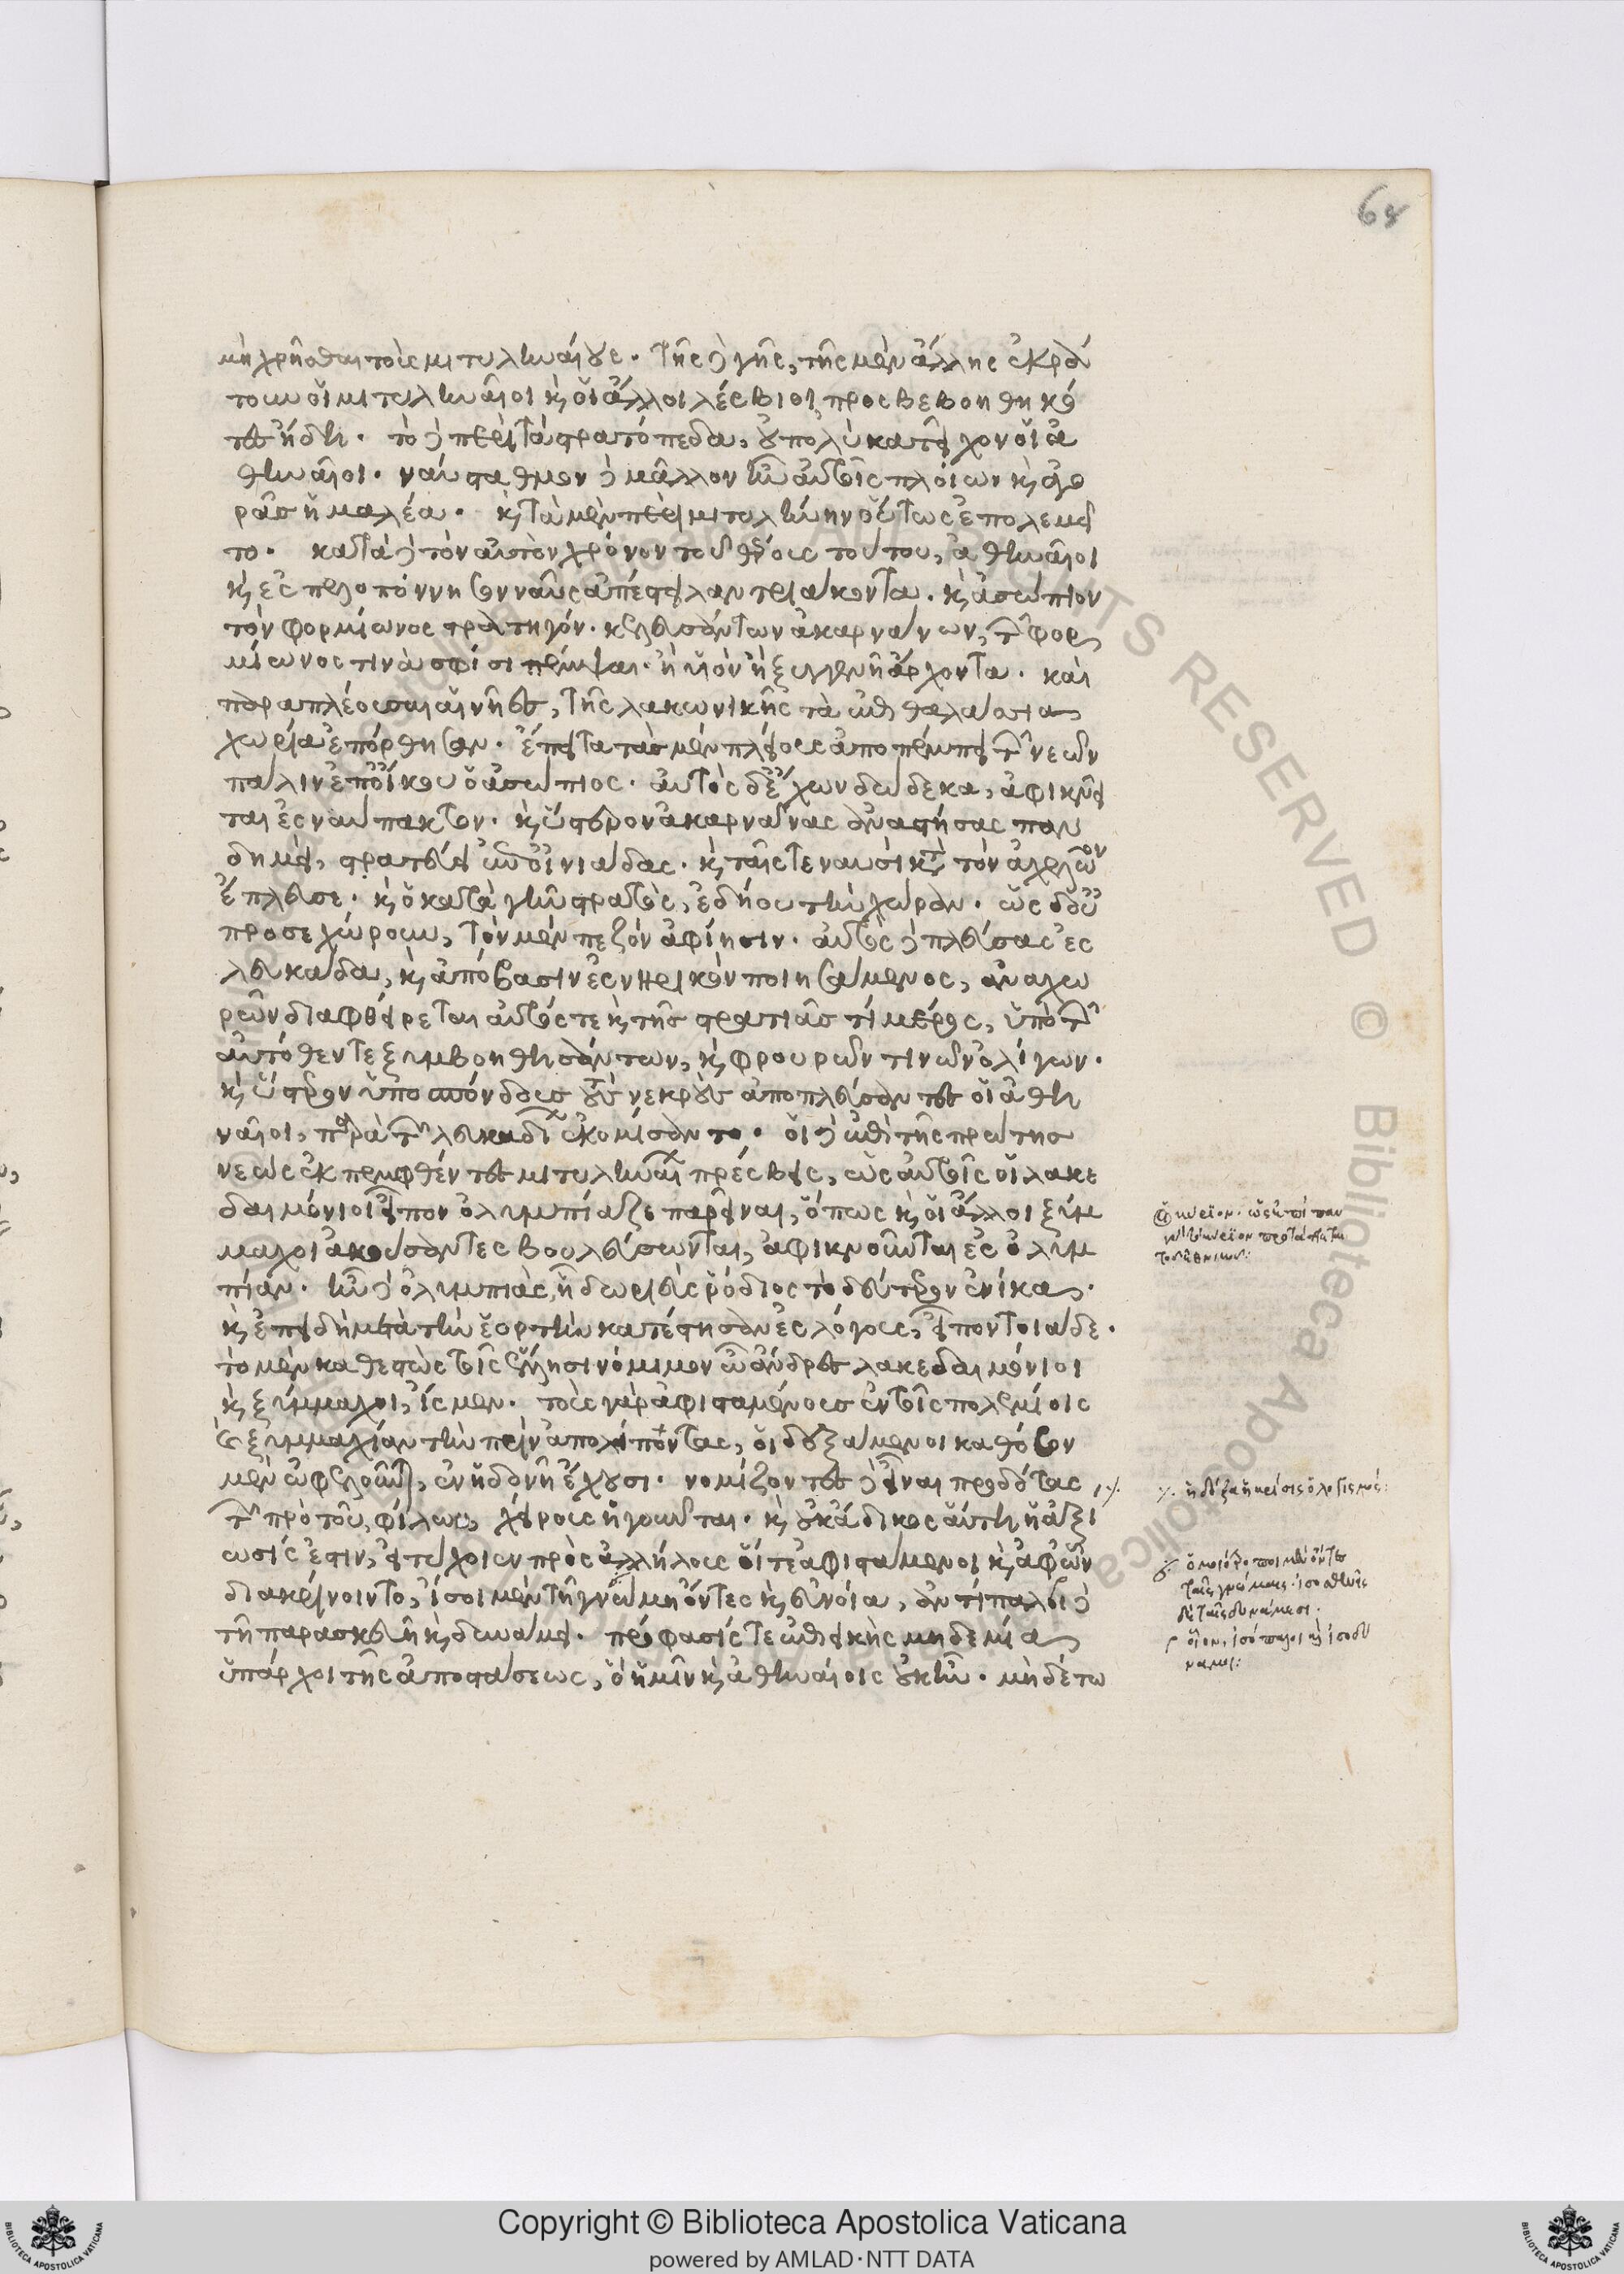 68
μὴ χρῆσθαι τοὺς μιτυληναίους. τῆς δὲ γῆς, τῆς μὲν ἄλλης ἐκρά
τουν οἱ μιτυληναῖοι κ οἱ ἄλλοι λέσβιοι, προσβεβοηθηκό
τες ἤδη. τὸ δὲ περὶ τὰ στρατόπεδα, οὐ πολὺ κατεῖχον οἱ ἀ
θηναῖοι. ναύσταθμον δὲ μᾶλλον ἦν αὐτοῖς πλοίων κ ἀγο
ρᾶς ἡ μαλέα. κ τὰ μὲν περὶ μιτυλήνην οὕτως ἐπολεμεῖ
το. κατὰ δὲ τὸν αὐτὸν χρόνον τοῦ θέρους τούτου, ἀθηναῖοι
κ ἐς πελοπόννησον ναῦς ἀπέστειλαν τριάκοντα. κ ἀσώπιον
τὸν φορμίωνος στρατηγόν. κελευσάντων ἀκαρνάνων, τῶν φορ
μίωνος τινὰ σφίσι πέμψαι. ἢ υἱὸν ἢ ξυγγενῆ ἄρχοντα. καὶ
παραπλέουσαι αἱ νῆες, τῆς λακωνικῆς τὰ ἐπιθαλάσσια
χωρία ἐπόρθησαν. ἔπειτα τὰς μὲν πλείους ἀποπέμπει τῶν νεῶν
πάλιν ἐπ' οἴκου ὁ ἀσώπιος. αὐτὸς δ' ἔχων δώδεκα, ἀφικνεῖ
ται ἐς ναύπακτον. κ ὕστερον ἀκαρνᾶνας ἀναστήσας παν
δημεὶ, στρατεύει ἐπ' οἰνιάδας. κ ταῖς τε ναυσὶ κατὰ τὸν ἀχελῶον
ἔπλευσε. κ ὁ κατὰ γῆν στρατὸς, ἐδήου τὴν χώραν. ὡς δ' οὐ
προσεχώρουν, τὸν μὲν πεζὸν ἀφίησιν. αὐτὸς δὲ πλεύσας ἐς
λευκάδα, κ ἀπόβασιν ἐς νήρικον ποιησάμενος, ἀναχω
ρῶν διαφθείρεται αὐτός τε κ τῆς στρατιᾶς τὶ μέρος, ὑπὸ τῶν
αὐτόθεν τε ξυμβοηθησάντων, κ φρουρῶν τινῶν ὀλίγων.
κ ὕστερον ὑποσπόνδους τοὺς νεκροὺς ἀποπλεύσαντες οἱ ἀθη
ναῖοι, παρὰ τῶν λευκαδίων ἐκομίσαντο. οἱ δὲ ἐπὶ τῆς πρώτης
νεὼς ἐκπεμφθέντες μιτυληναίων πρέσβεις, ὡς αὐτοῖς οἱ λακε
δαιμόνιοι εἶπον ὀλυμπίαζε παρεῖναι, ὅπως κ οἱ ἄλλοι ξύμ
μαχοι ἀκούσαντες βουλεύσωνται, ἀφικνοῦνται ἐς ὀλυμ
πίαν. ἦν δὲ ὀλυμπιὰς, ᾗ δωριεὺς ῥόδιος τὸ δεύτερον ἐνίκα.
κ ἐπειδὴ μετὰ τὴν ἑορτὴν κατέστησαν ἐς λόγους, εἶπον τοιάδε.
τὸ μὲν καθεστὼς τοῖς ἕλλησι νόμιμον ὦ ἄνδρες λακεδαιμόνιοι
κ ξύμμαχοι, ἴσμεν. τοὺς γὰρ ἀφισταμένους ἐν τοῖς πολέμοις
κ ξυμμαχίαν τὴν πρὶν ἀπολείποντας, οἱ δεξάμενοι καθόσον
μὲν ὠφελοῦνται, ἐν ἡδονῇ ἔχουσι. νομίζοντες δὲ εἶναι προδότας
τῶν πρὸ τοῦ φίλων, χείρους ἡγοῦνται. κ οὐκ ἄδικος αὕτη ἡ ἀξί
ωσίς ἐστιν, εἰ τύχοιεν πρὸς ἀλλήλους οἵ τε ἀφιστάμενοι κ ἀφ' ὧν
διακρίνοιντο, ἴσοι μὲν τῇ γνώμῃ ὄντες κ εὐνοίᾳ, ἀντίπαλοι δὲ
τῇ παρασκευῇ κ δυνάμει. πρόφασίς τε ἐπιεικὴς μηδεμία
ὑπάρχοι τῆς ἀποστάσεως, ὃ ἡμῖν κ ἀθηναίοις οὐκ ἦν. μηδέ τω
ἡ δόξα ἡ κρίσις ὁ λογισμός:
ὁμοιότροποι μὲν ὄντες
ταῖς γνώμαις. ἰσοσθενεῖς
δὲ ταῖς δυνάμεσι.
οἷον, ἰσόπαλοι κ ἰσοδύ
ναμοι:
Copyright © Biblioteca Apostolica Vaticana
powered by AMLAD·NTT DATA